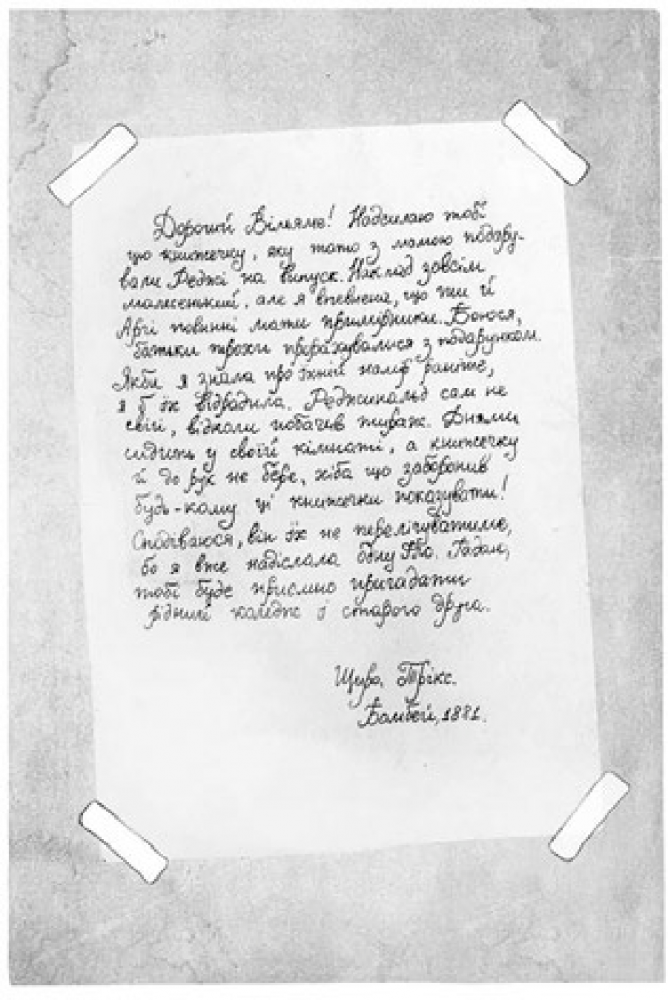 Дорогий Вільяме! Надсилаю тобі
цю книжечку, яку тато з мамою подару-
вали Реджі на випуск. Наклад зовсім
малесенький, але я впевнена, що ти й
Арчі повинні мати примірники. Боюся,
батьки трохи прорахувалися з подарунком.
Якби я знала про їхній намір раніше,
я б їх відрадила. Реджинальд сам не
свій, відколи побачив тираж. Днями
сидить у своїй кімнаті, а книжечку
й до рук не бере, хіба що заборонив
будь-кому ці книжечки показувати!
Сподіваюся, він їх не перелічуватиме,
бо я вже надіслала одну Фло. Гадаю,
тобі буде приємно пригадати
рідний коледж і старого друга.
Щиро, Трікс.
Бомбей, 1881.